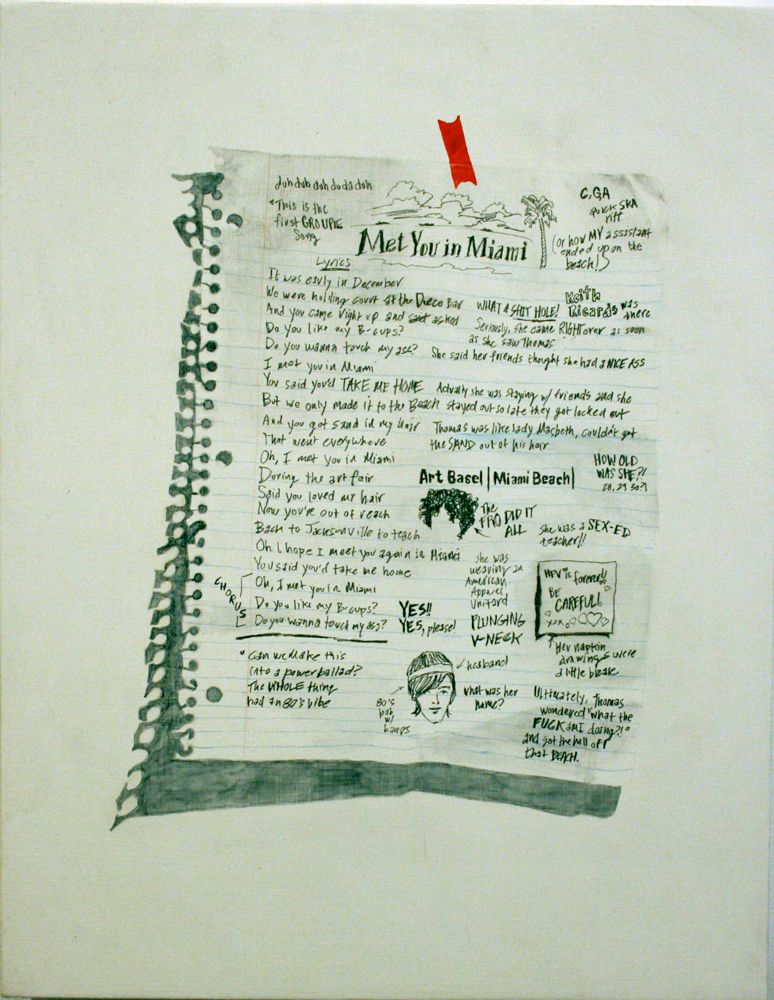 duh duh duh du da duh
*This is the
first GROUPIE
Song
C, GA
quick SKA
riff
(or how MY assistant
ended up on the
beach!)
Met You in Miami
Lyrics
It was early in December
We were holding court at the Deuce Bar
And you came right up and asked
Do you like my B-cups?
Do you wanna touch my ass?
I met you in Miami
You said you'd TAKE ME HOME
But we only made it to the Beach
And you got sand in my hair
That went everywhere
Oh, I met you in Miami
During the art fair
Said you loved my hair
Now you're out of reach
Back to Jacksonville to teach
Oh I hope I meet you again in Miami
You said you'd take me home
CHORUS
Oh, I met you in Miami
Do you like my B-cups?
Do you wanna touch my ass?
WHAT A SHIT HOLE!
Keith
Ricards was
there
Seriously, she came RIGHT over as soon
as she saw Thomas
She said her friends thought she had a NICE ASS
Actually she was staying w/ friends and she
stayed out so late they got locked out
Thomas was like lady Macbeth, couldn't get
the SAND out of his hair
Art Basel | Miami Beach |
HOW OLD
WAS SHE?!
28, 29 30?!
The
FRO DID IT
ALL
She was a SEX-ED
teacher!!
She was
wearing an
American
Apparel
Unitard
PLUNGING
V-NECK
HPV is forever!!
BE
CAREFUL!
xox
Her napkin
drawings were
a little bleak
YES!!
YES, please!
*Can we make this
into a power ballad?
The WHOLE thing
had an 80's vibe
headband
80's
bob
w/
bangs
What was her
name?
Ultimately, Thomas
wondered "what the
FUCK am I doing?!"
and got the hell off
that BEACH.